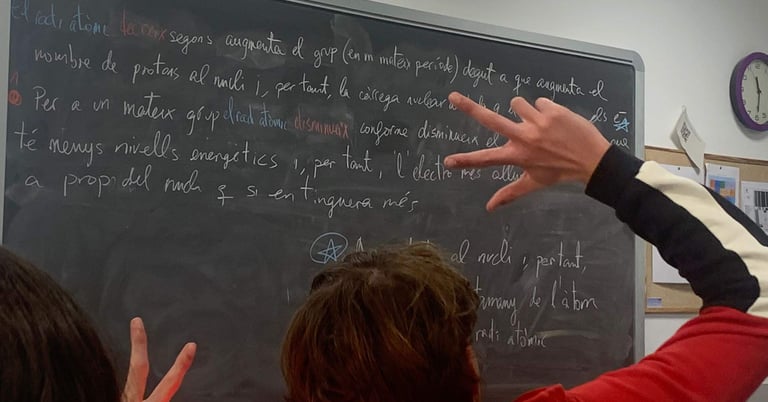 El radi atòmic decreix segons augmenta el grup (en un mateix període) degut a que augmenta el
nombre de protons al nucli i, per tant, la càrrega nuclear
Per a un mateix grup el radi atòmic disminueix conforme disminueix el
té menys nivells energètics i, per tant, l'electró més
a prop del nucli q si en tinguera més
al nucli i, per tant,
de l'àtom
radi atòmic